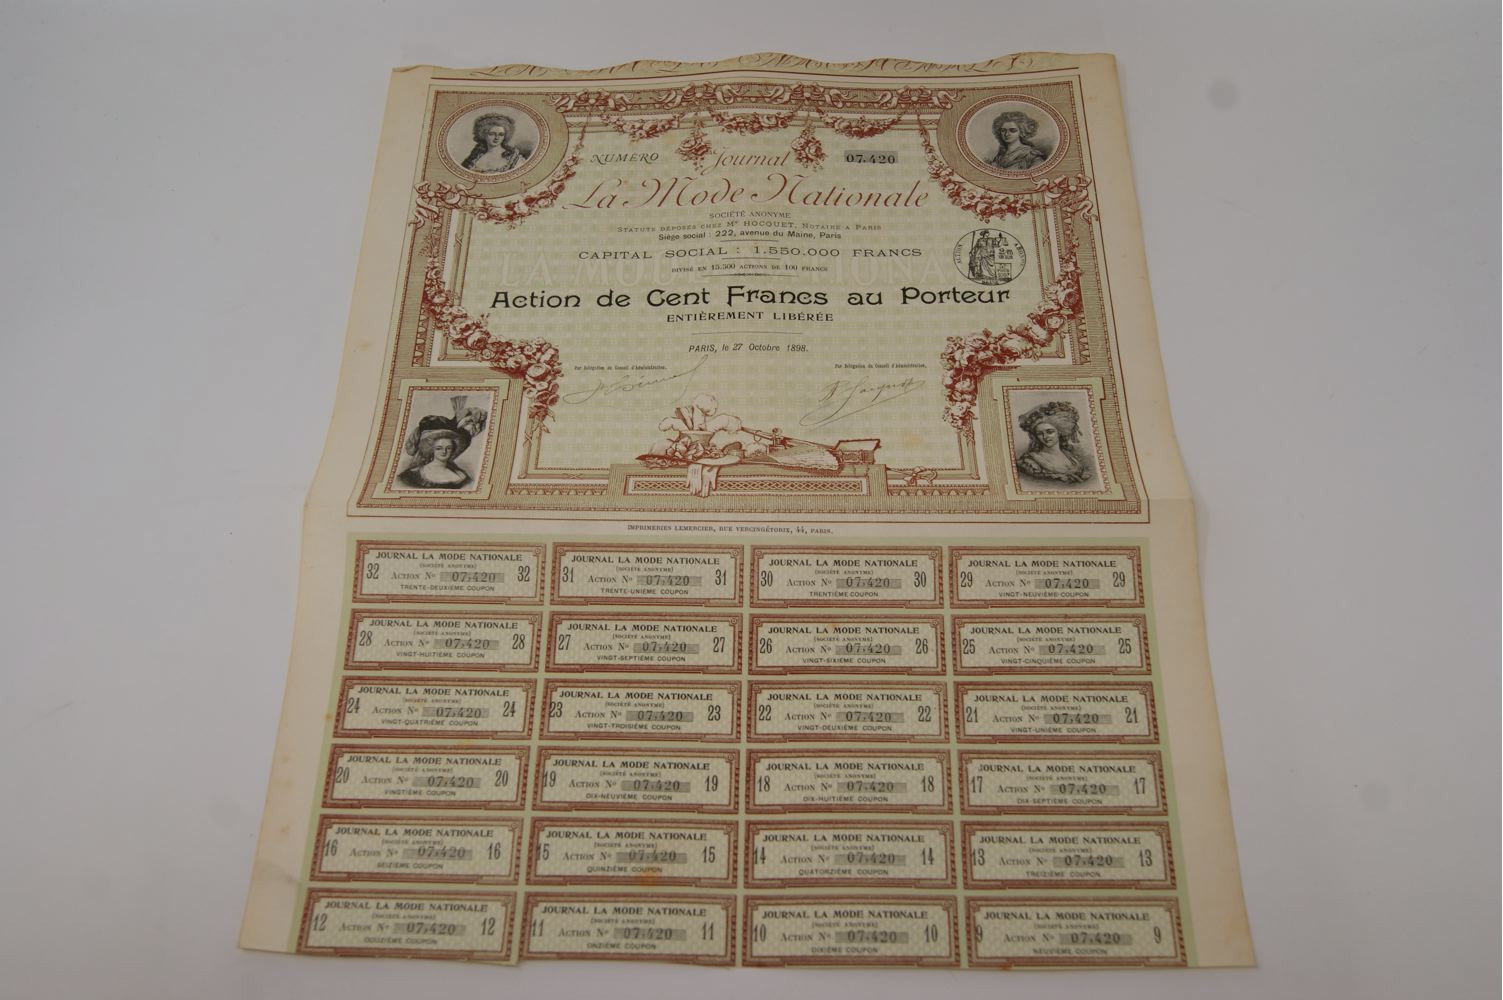 NUMÉRO Journal 07.420
La Mode Nationale
SOCIÉTÉ ANONYME
STATUTS DÉPOSÉS CHEZ Me HOCQUET, NOTAIRE A PARIS
Siège social : 222, avenue du Maine, Paris
CAPITAL SOCIAL : 1.550.000 FRANCS
DIVISÉ EN 15.500 ACTIONS DE 100 FRANCS
Action de Cent Francs au Porteur
ENTIÈREMENT LIBÉRÉE
PARIS, le 27 Octobre 1898.
Par Délégation du Conseil d'Administration, Par Délégation du Conseil d'Administration,
IMPRIMERIES LEMERCIER, RUE VERCINGÉTORIX, 44, PARIS.
JOURNAL LA MODE NATIONALE
(SOCIÉTÉ ANONYME)
32 ACTION No 07.420 32
TRENTE-DEUXIÈME COUPON
JOURNAL LA MODE NATIONALE
(SOCIÉTÉ ANONYME)
31 ACTION No 07.420 31
TRENTE-UNIÈME COUPON
JOURNAL LA MODE NATIONALE
(SOCIÉTÉ ANONYME)
30 ACTION No 07.420 30
TRENTIÈME COUPON
JOURNAL LA MODE NATIONALE
(SOCIÉTÉ ANONYME)
29 ACTION No 07.420 29
VINGT-NEUVIÈME COUPON
JOURNAL LA MODE NATIONALE
(SOCIÉTÉ ANONYME)
28 ACTION No 07.420 28
VINGT-HUITIÈME COUPON
JOURNAL LA MODE NATIONALE
(SOCIÉTÉ ANONYME)
27 ACTION No 07.420 27
VINGT-SEPTIÈME COUPON
JOURNAL LA MODE NATIONALE
(SOCIÉTÉ ANONYME)
26 ACTION No 07.420 26
VINGT-SIXIÈME COUPON
JOURNAL LA MODE NATIONALE
(SOCIÉTÉ ANONYME)
25 ACTION No 07.420 25
VINGT-CINQUIÈME COUPON
JOURNAL LA MODE NATIONALE
(SOCIÉTÉ ANONYME)
24 ACTION No 07.420 24
VINGT-QUATRIÈME COUPON
JOURNAL LA MODE NATIONALE
(SOCIÉTÉ ANONYME)
23 ACTION No 07.420 23
VINGT-TROISIÈME COUPON
JOURNAL LA MODE NATIONALE
(SOCIÉTÉ ANONYME)
22 ACTION No 07.420 22
VINGT-DEUXIÈME COUPON
JOURNAL LA MODE NATIONALE
(SOCIÉTÉ ANONYME)
21 ACTION No 07.420 21
VINGT-UNIÈME COUPON
JOURNAL LA MODE NATIONALE
(SOCIÉTÉ ANONYME)
20 ACTION No 07.420 20
VINGTIÈME COUPON
JOURNAL LA MODE NATIONALE
(SOCIÉTÉ ANONYME)
19 ACTION No 07.420 19
DIX-NEUVIÈME COUPON
JOURNAL LA MODE NATIONALE
(SOCIÉTÉ ANONYME)
18 ACTION No 07.420 18
DIX-HUITIÈME COUPON
JOURNAL LA MODE NATIONALE
(SOCIÉTÉ ANONYME)
17 ACTION No 07.420 17
DIX-SEPTIÈME COUPON
JOURNAL LA MODE NATIONALE
(SOCIÉTÉ ANONYME)
16 ACTION No 07.420 16
SEIZIÈME COUPON
JOURNAL LA MODE NATIONALE
(SOCIÉTÉ ANONYME)
15 ACTION No 07.420 15
QUINZIÈME COUPON
JOURNAL LA MODE NATIONALE
(SOCIÉTÉ ANONYME)
14 ACTION No 07.420 14
QUATORZIÈME COUPON
JOURNAL LA MODE NATIONALE
(SOCIÉTÉ ANONYME)
13 ACTION No 07.420 13
TREIZIÈME COUPON
JOURNAL LA MODE NATIONALE
(SOCIÉTÉ ANONYME)
12 ACTION No 07.420 12
DOUZIÈME COUPON
JOURNAL LA MODE NATIONALE
(SOCIÉTÉ ANONYME)
11 ACTION No 07.420 11
ONZIÈME COUPON
JOURNAL LA MODE NATIONALE
(SOCIÉTÉ ANONYME)
10 ACTION No 07.420 10
DIXIÈME COUPON
JOURNAL LA MODE NATIONALE
(SOCIÉTÉ ANONYME)
9 ACTION No 07.420 9
NEUVIÈME COUPON